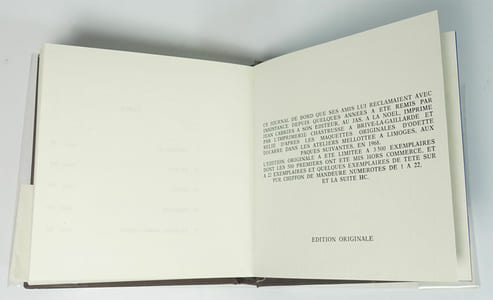 CE JOURNAL DE BORD QUE SES AMIS LUI RECLAMAIENT AVEC
INSISTANCE DEPUIS QUELQUES ANNEES A ETE REMIS PAR
JEAN CARRIER A SON EDITEUR, AU JAS, A LA NOEL, IMPRIME
PAR L'IMPRIMERIE CHASTRUSSE A BRIVE-LA-GAILLARDE ET
RELIE D'APRES LES MAQUETTES ORIGINALES D'ODETTE
DUCARRE DANS LES ATELIERS MELLOTTEE A LIMOGES, AUX
PAQUES SUIVANTES, EN 1968.
L'EDITION ORIGINALE A ETE LIMITEE A 3 500 EXEMPLAIRES
DONT LES 500 PREMIERS ONT ETE MIS HORS COMMERCE, ET
A 22 EXEMPLAIRES ET QUELQUES EXEMPLAIRES DE TETE SUR
PUR CHIFFON DE MANDEURE NUMEROTES DE 1 A 22,
ET LA SUITE HC.
EDITION ORIGINALE